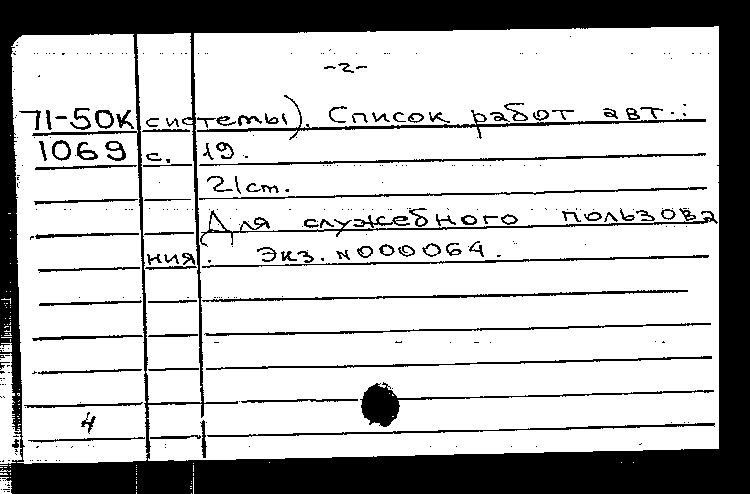 -2-
71-50К системы). Список работ авт.:
1069 с. 19.
21см.
Для служебного пользова
ния. Экз. N000064.
4